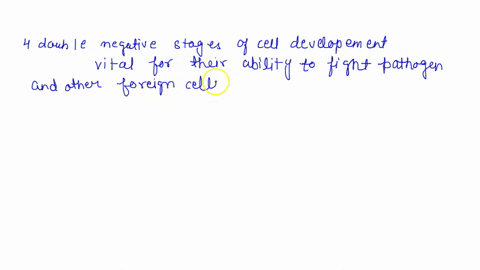 4 double negative stages of cell developement
vital for their ability to fight pathogen
and other foreign cell